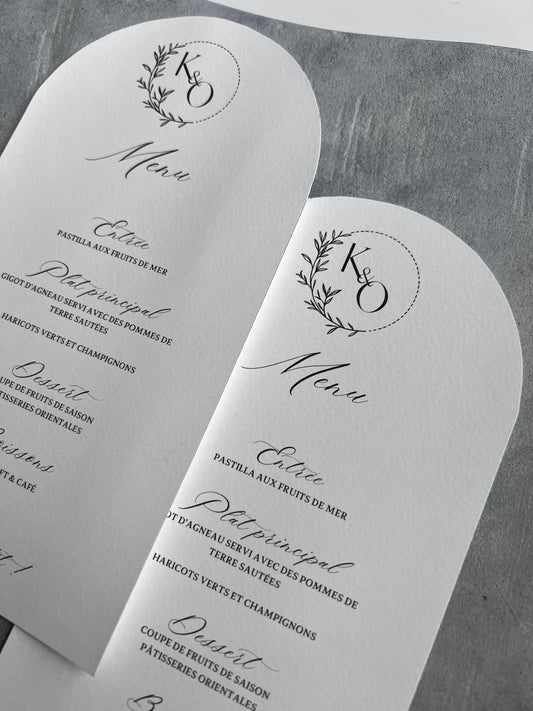 K&O
Menu
Entrée
PASTILLA AUX FRUITS DE MER
Plat principal
GIGOT D'AGNEAU SERVI AVEC DES POMMES DE
TERRE SAUTÉES
HARICOTS VERTS ET CHAMPIGNONS
Dessert
COUPE DE FRUITS DE SAISON
PÂTISSERIES ORIENTALES
& CAFÉ
K&O
Menu
Entrée
PASTILLA AUX FRUITS DE MER
Plat principal
GIGOT D'AGNEAU SERVI AVEC DES POMMES DE
TERRE SAUTÉES
HARICOTS VERTS ET CHAMPIGNONS
Dessert
COUPE DE FRUITS DE SAISON
PÂTISSERIES ORIENTALES
B